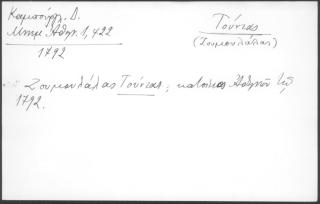 Καμπούρογλ. Δ.
Μνημ. Αθην. 1, 422
1792
Τούντας
(Ζουμουλάλας)
Ζουμουλάλας Τούντας, κατοικος Αθηνών τῷ
1792.